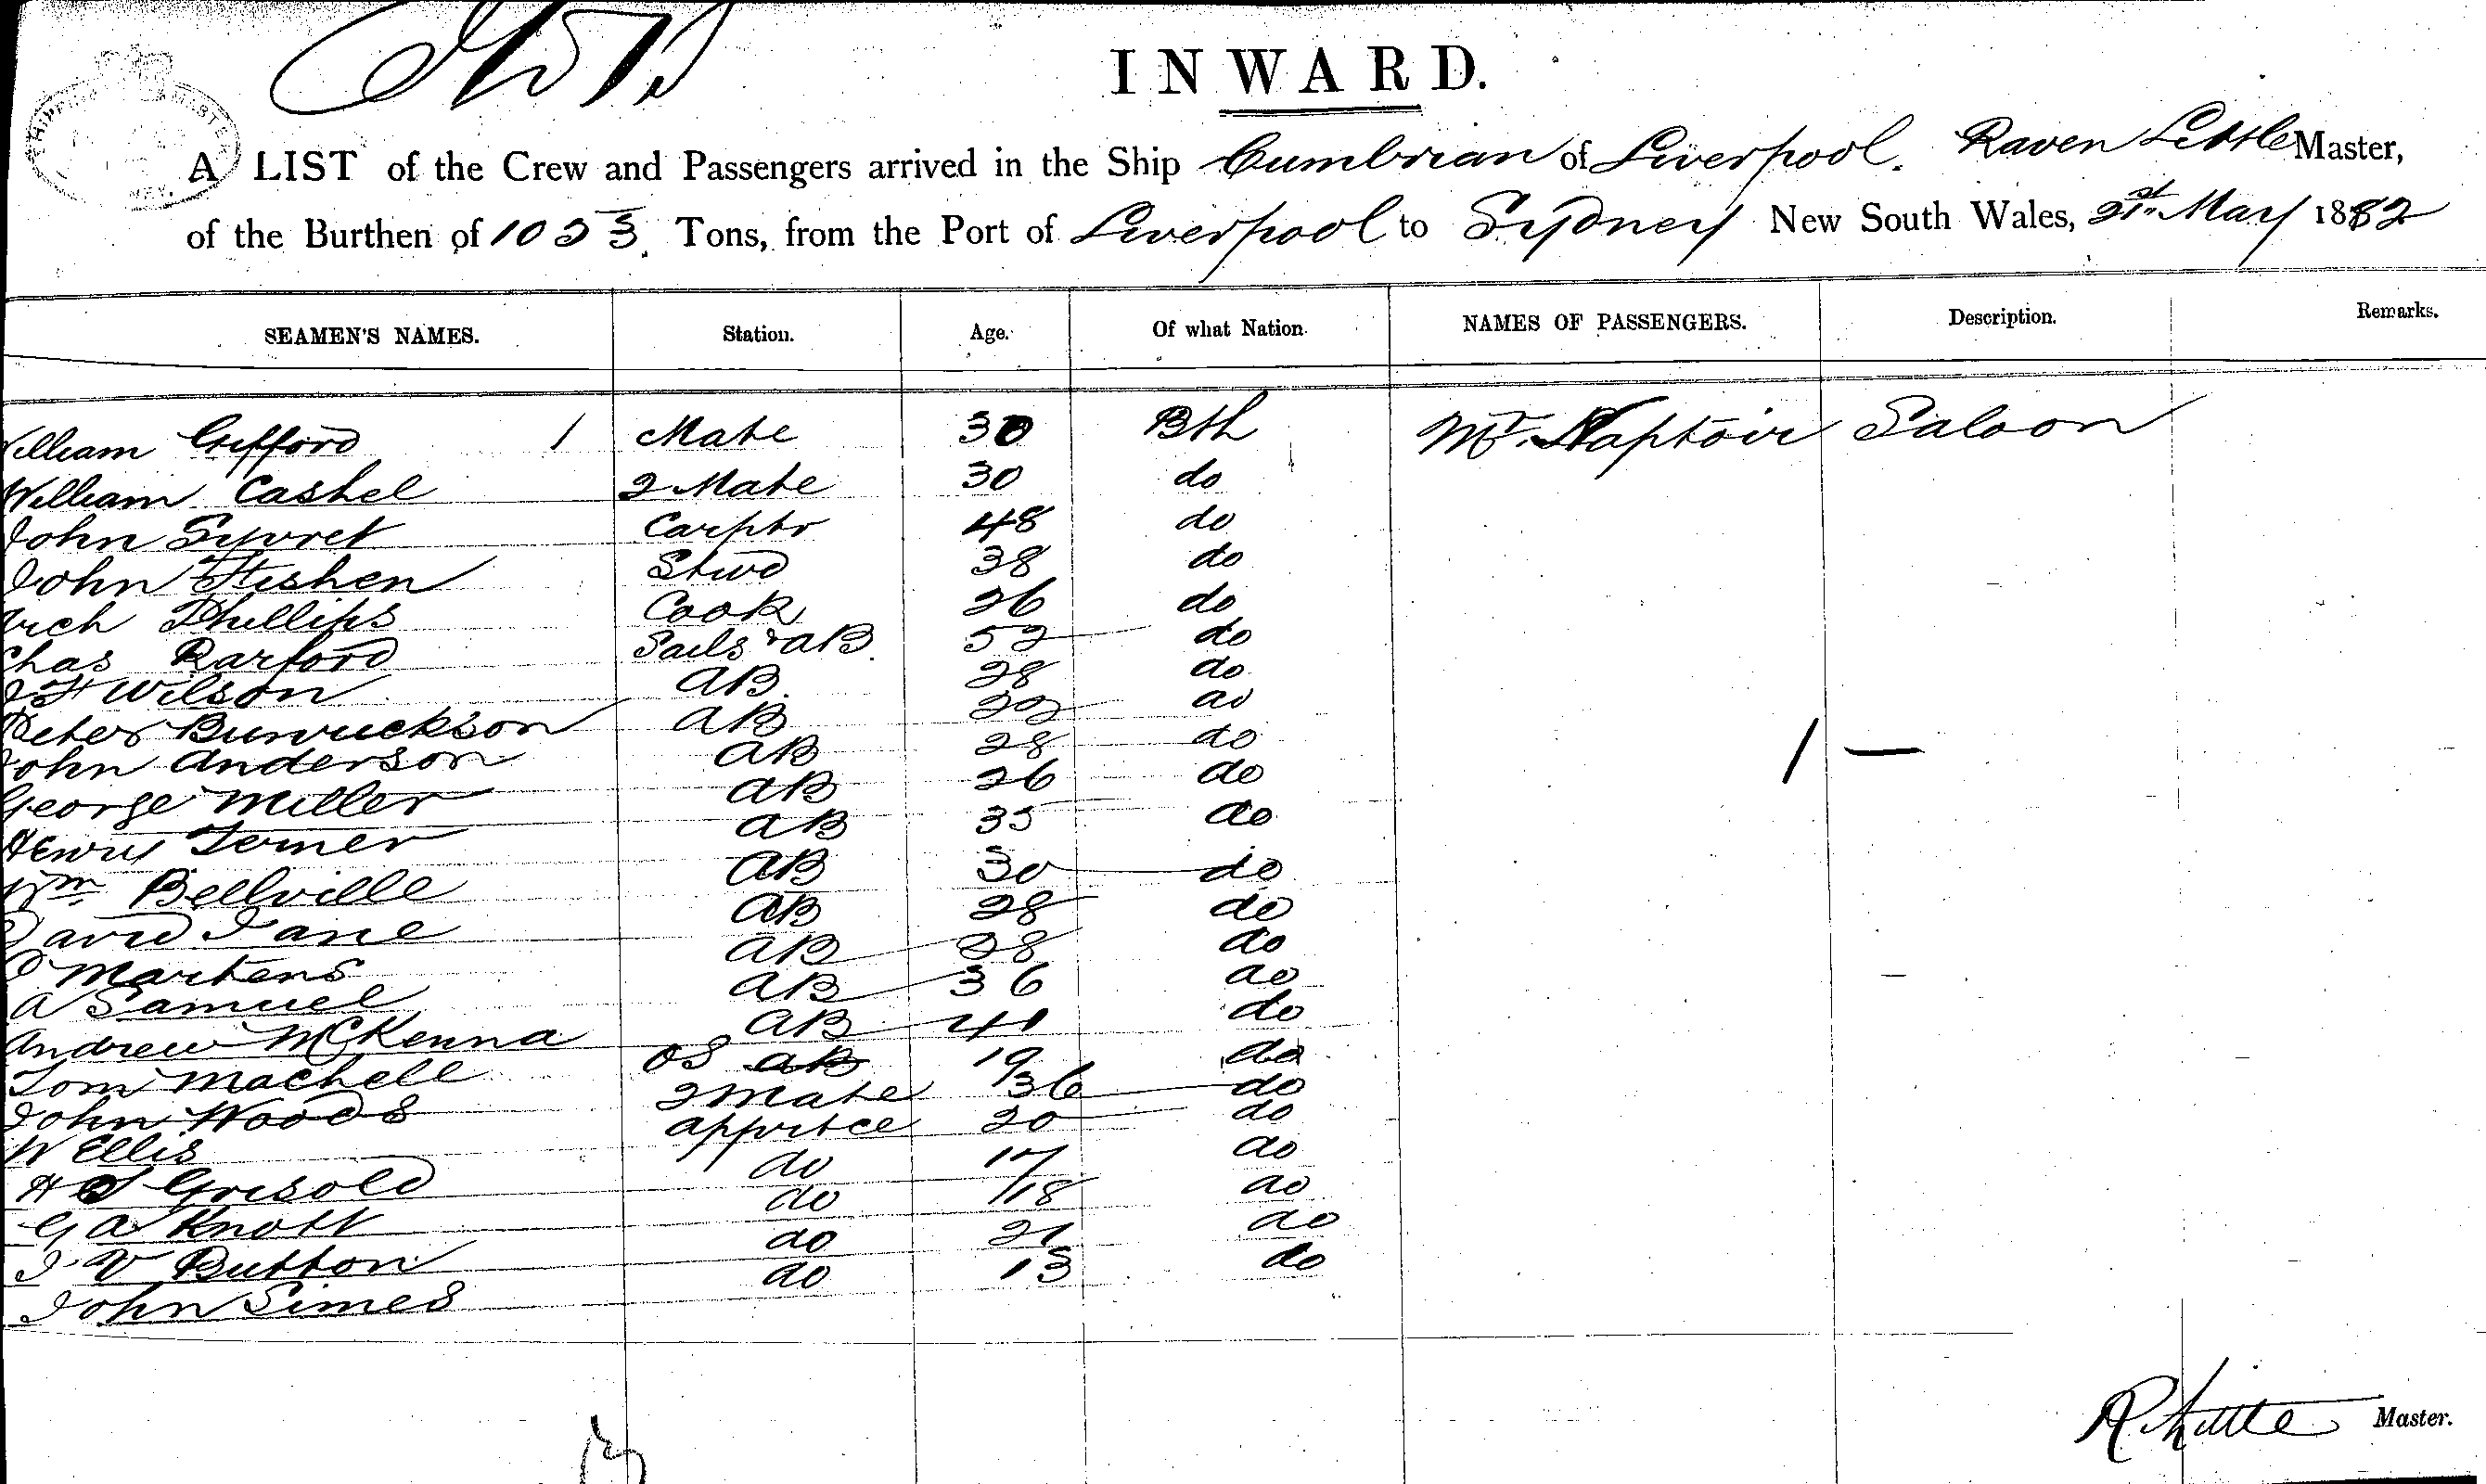 INWARD.
A LIST of the Crew and Passengers arrived in the Ship Cumbrian of Liverpool. Raven Little Master,
of the Burthen of 1053 Tons, from the Port of Liverpool to Sydney New South Wales, 21st May 1882
SEAMEN'S NAMES. Station. Age. Of what Nation. NAMES OF PASSENGERS. Description. Remarks.
William Gifford 1 Mate 30 Bth Mr. Saloon
William Cashel 2 Mate 30 do
John Syvret Carptr 48 do
John Stwd 38 do
Arch Phillips Cook 26 do
Chas Sails & AB. 52 do
J H Wilson AB. 28 do
Peter AB 22 do
John Anderson AB 28 do
George Miller AB 26 do
Henry Terner AB 35 do
Wm Bellville AB 30 do
David Lane AB 28 do
Martens AB 28 do
A Samuel AB 36 do
Andrew McKenna AB 41 do
Tom Machell OS AB 19 do
John Woods 2 Mate 36 do
W Ellis apprtce 20 do
H Grisold do 17 do
G A Knott do 18 do
J V Button do 21 do
John Simes do 15 do
1 —
R Little Master.